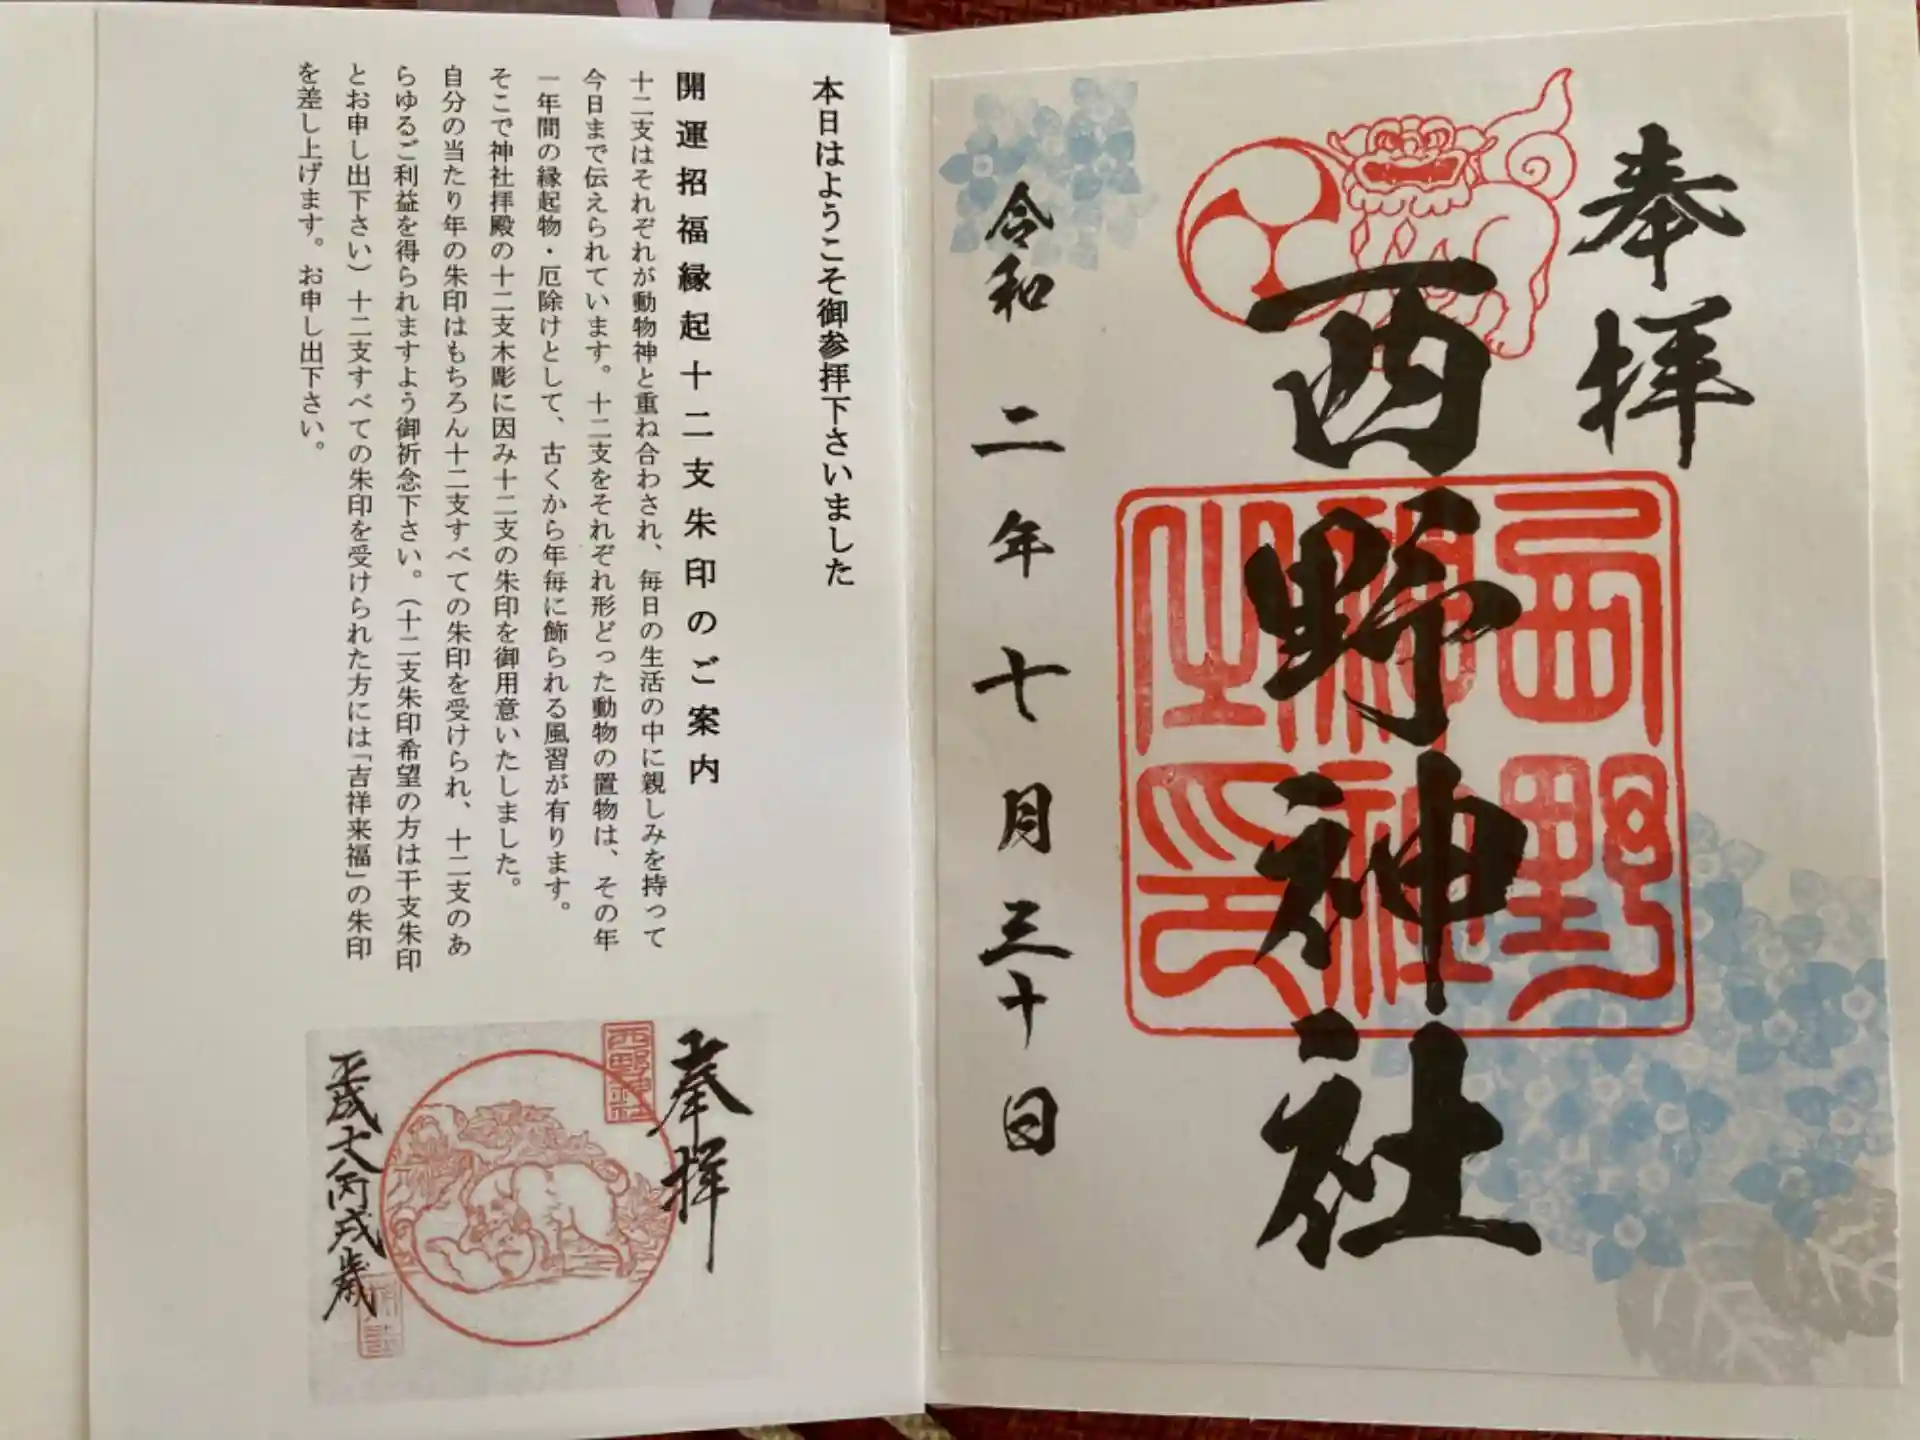 奉拝
西野神社
西野神社之印
令和二年七月三十日
本日はようこそ御参拝下さいました
開運招福縁起十二支朱印のご案内
十二支はそれぞれが動物神と重ね合わされ、毎日の生活の中に親しみを持って
今日まで伝えられています。十二支をそれぞれ形どった動物の置物は、その年
一年間の縁起物・厄除けとして、古くから年毎に飾られる風習が有ります。
そこで神社拝殿の十二支木彫に因み十二支の朱印を御用意いたしました。
自分の当たり年の朱印はもちろん十二支すべての朱印を受けられ、十二支のあ
らゆるご利益を得られますよう御祈念下さい。（十二支朱印希望の方は干支朱印
とお申し出下さい）十二支すべての朱印を受けられた方には「吉祥来福」の朱印
を差し上げます。お申し出下さい。
奉拝
西野神社
平成十八丙戌歳